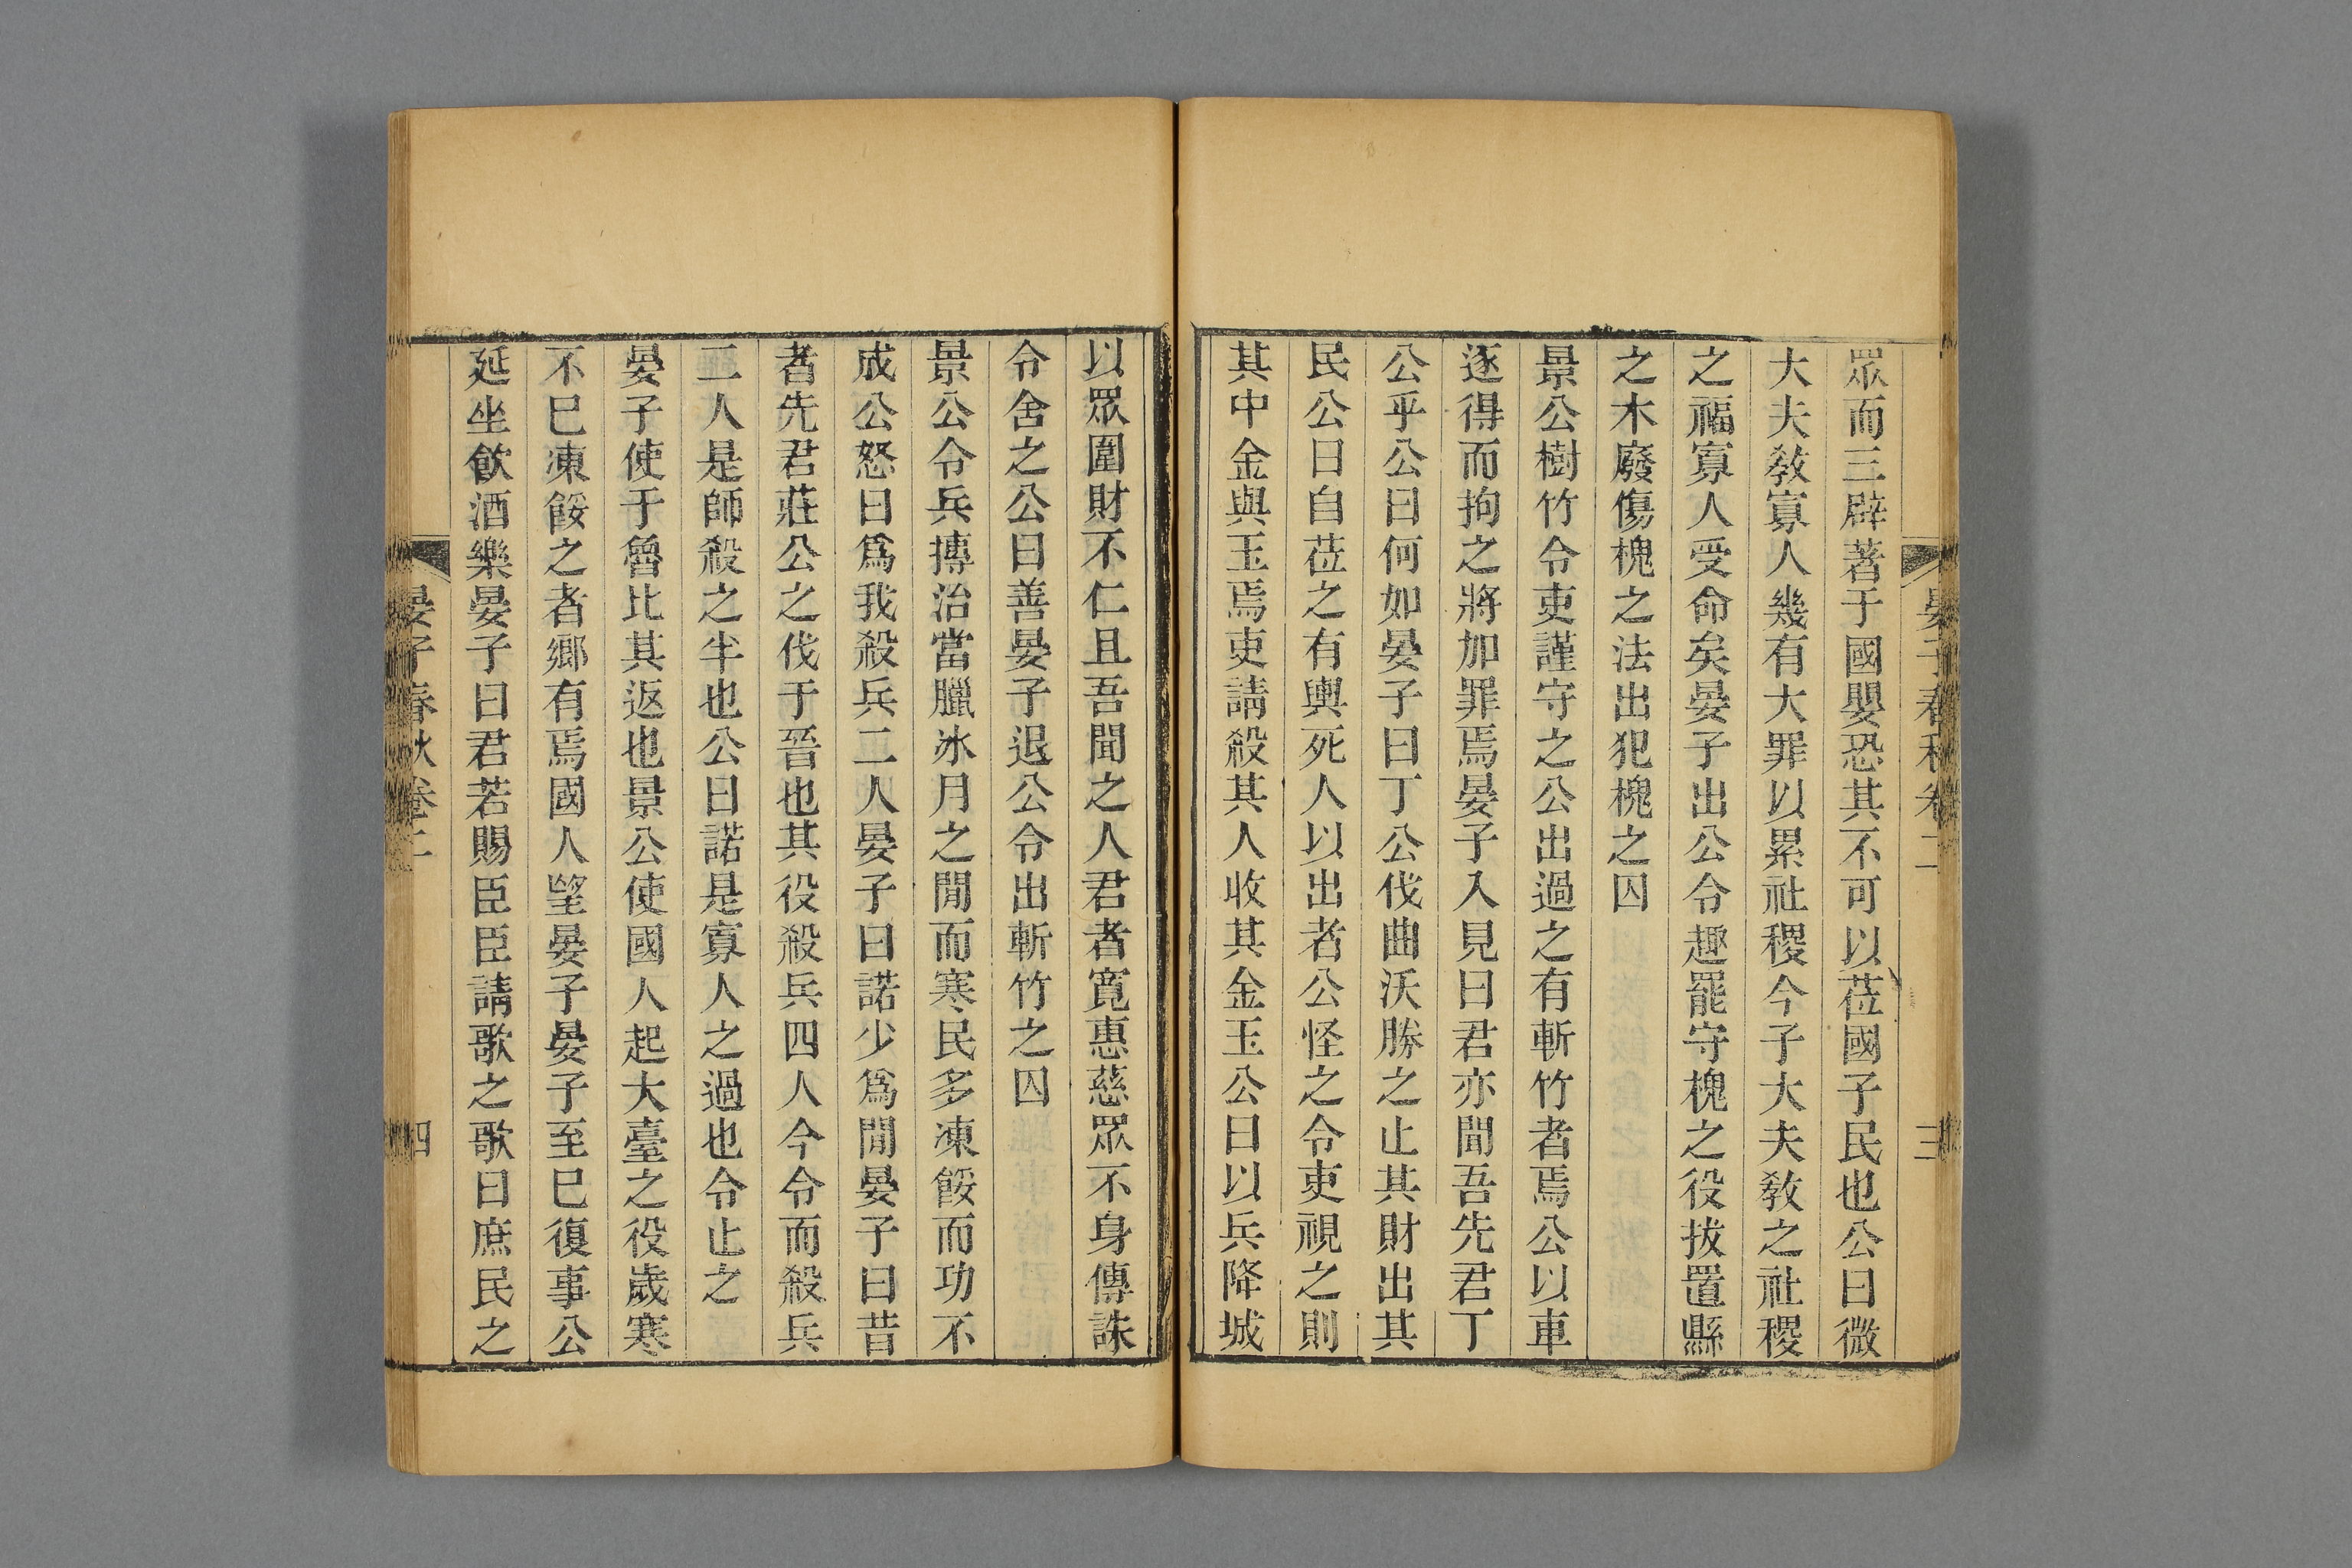 晏子春秋卷二 三
眾而三辟著于國嬰恐其不可以莅國子民也公曰微
大夫敎寡人幾有大罪以累社稷今子大夫敎之社稷
之福寡人受命矣晏子出公令趣罷守槐之役拔置縣
之木廢傷槐之法出犯槐之囚
景公樹竹令吏謹守之公出過之有斬竹者焉公以車
逐得而拘之將加罪焉晏子入見曰君亦聞吾先君丁
公乎公曰何如晏子曰丁公伐曲沃勝之止其財出其
民公日自莅之有輿死人以出者公怪之令吏視之則
其中金與玉焉吏請殺其人收其金玉公曰以兵降城
以眾圍財不仁且吾聞之人君者寬惠慈眾不身傳誅
令舍之公曰善晏子退公令出斬竹之囚
景公令兵摶治當臘冰月之閒而寒民多凍餒而功不
成公怒曰爲我殺兵二人晏子曰諾少爲閒晏子曰昔
者先君莊公之伐于晉也其役殺兵四人今令而殺兵
二人是師殺之半也公曰諾是寡人之過也令止之
晏子使于魯比其返也景公使國人起大臺之役歲寒
不已凍餒之者鄉有焉國人望晏子晏子至已復事公
延坐飮酒樂晏子曰君若賜臣臣請歌之歌曰庶民之
晏子春秋卷二 四